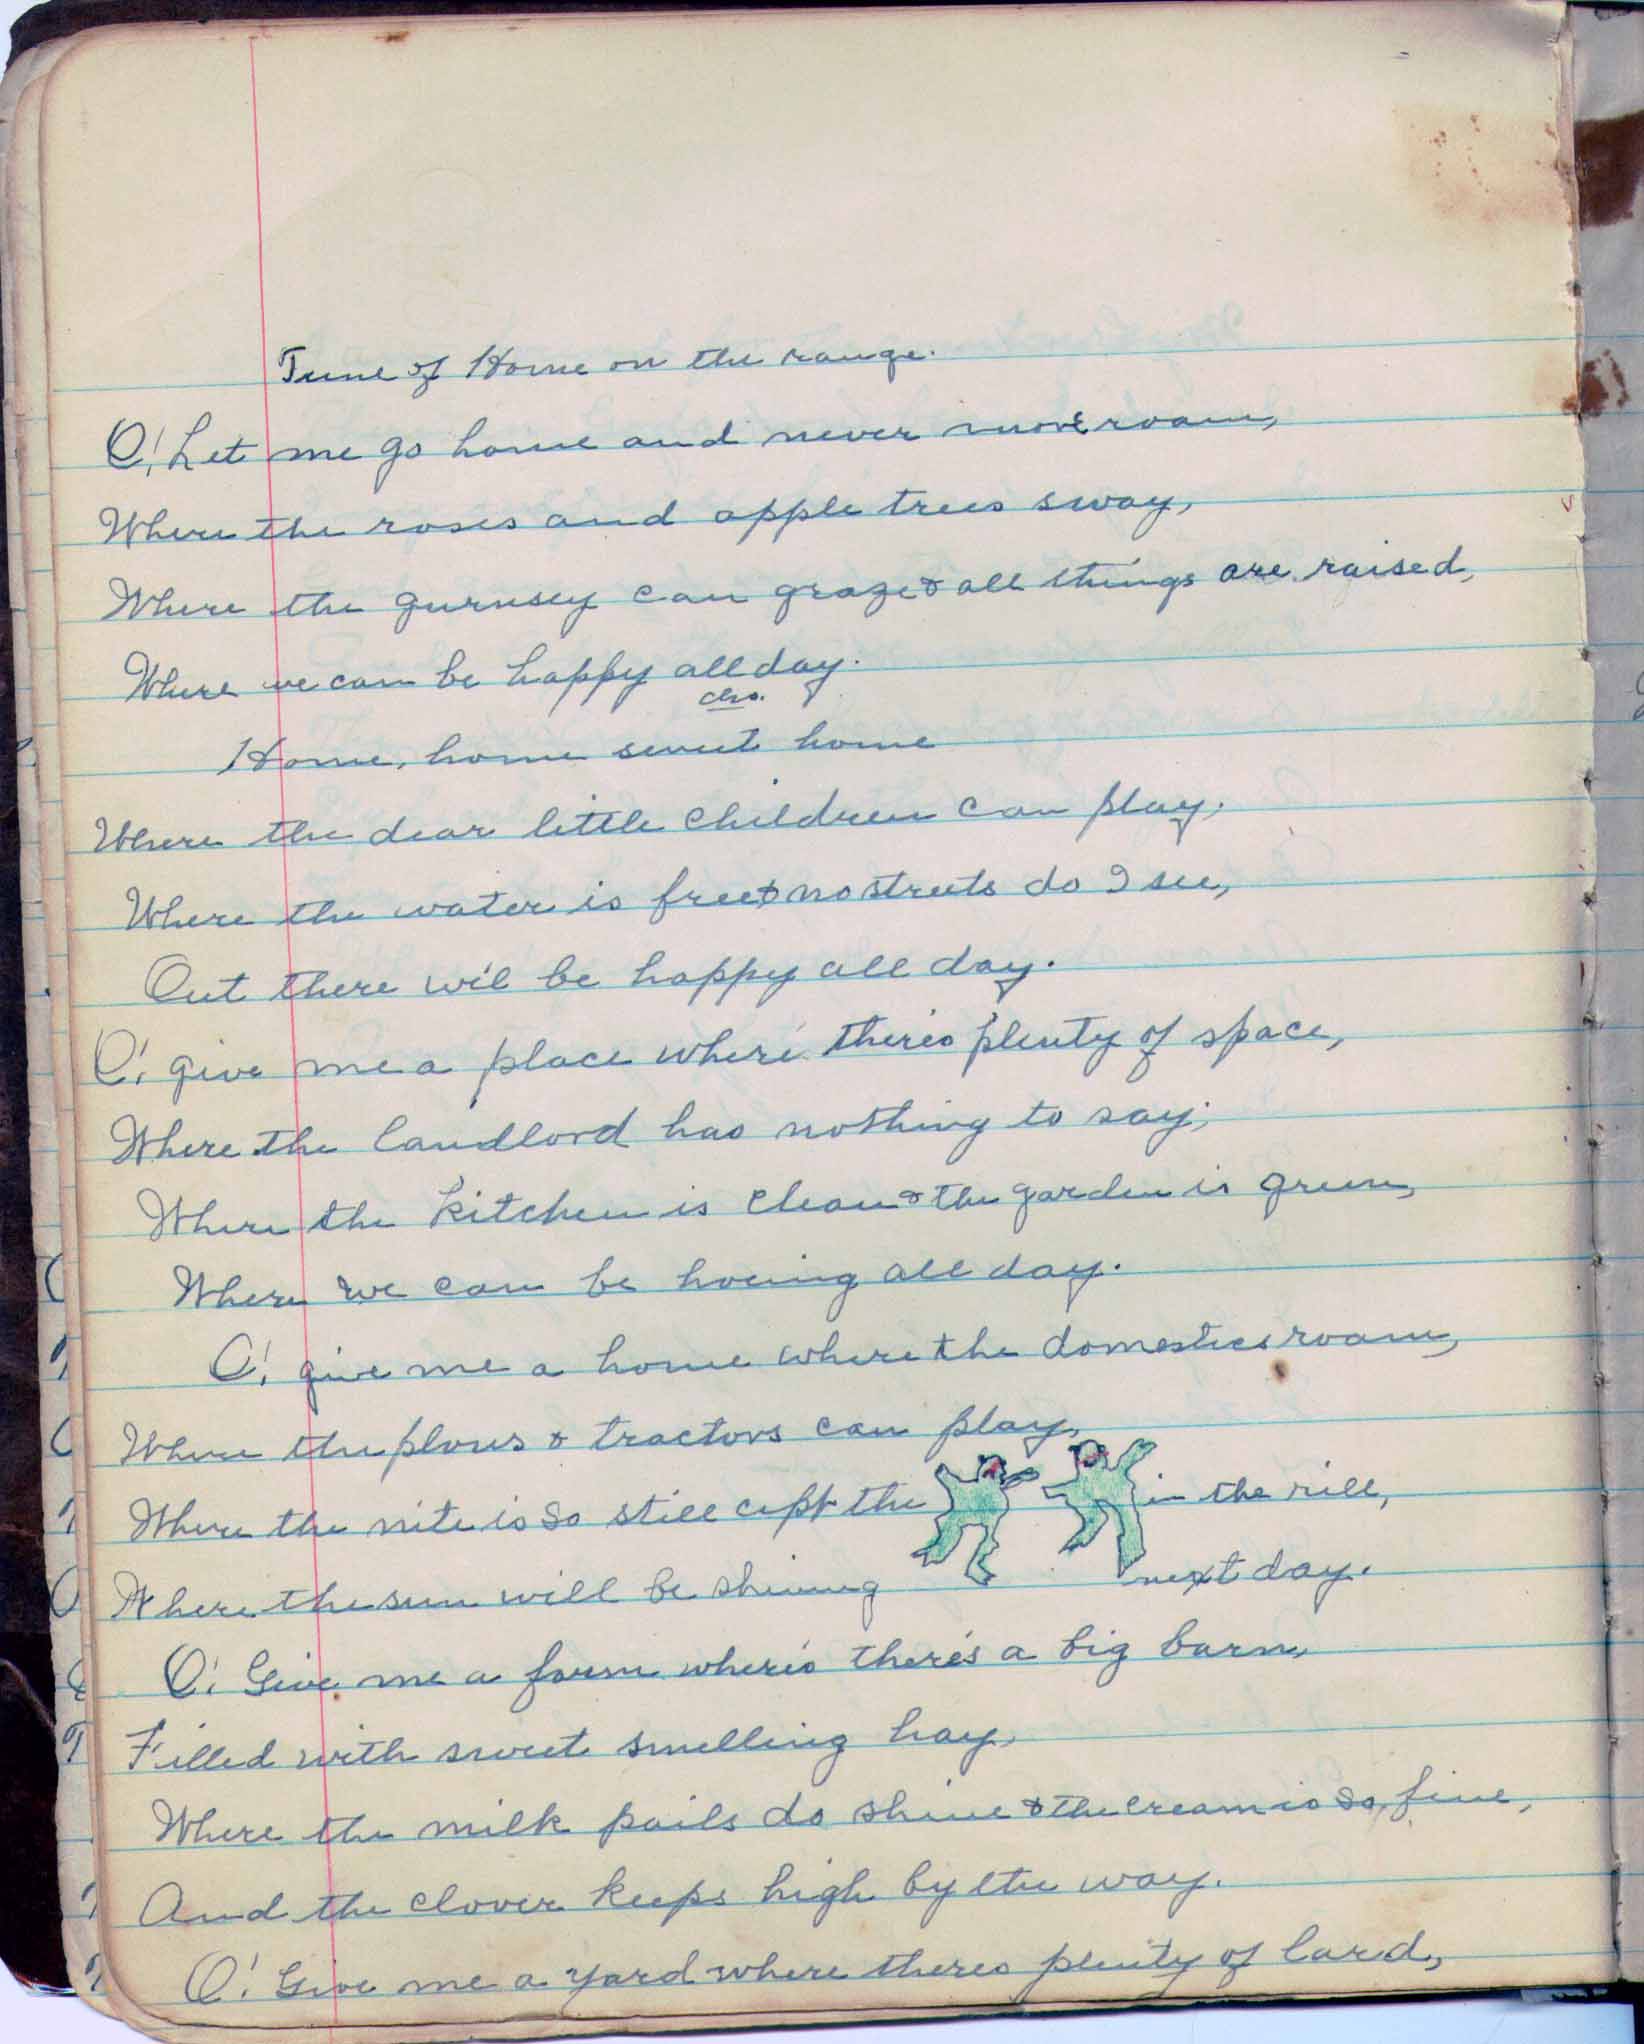 Tune of Home on the range.
O! Let me go home and never more roam,
Where the roses and apple trees sway,
Where the gurnsey can graze & all things are raised,
Where we can be happy all day.
cho.
Home, home sweet home
Where the dear little children can play,
Where the water is free & no streets do I see,
Out there we'l be happy all day.
O! give me a place where there's plenty of space,
Where the landlord has nothing to say,
Where the kitchen is clean & the garden is green,
Where we can be hoeing all day.
O! give me a home where the domestics roam,
Where the plows & tractors can play,
Where the nite is so still cept the in the rill,
Where the sun will be shining next day.
O! Give me a farm where's there's a big barn,
Filled with sweet smelling hay,
Where the milk pails do shine & the cream is so fine,
And the clover keeps high by the way.
O! Give me a yard where theres plenty of lard,